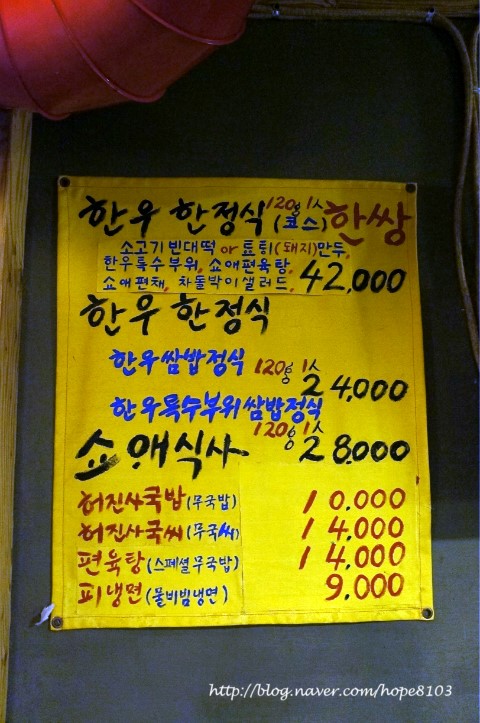 한우 한정식 120g 1人 (코스) 한쌍
소고기빈대떡 or 튀김(돼지)만두,
한우특수부위, 쇼애편육탕,
쇼애편채, 차돌박이샐러드, 42,000
한우 한정식
한우쌈밥정식 120g 1人 24,000
한우특수부위쌈밥정식
120g 1人 28,000
쇼애식사
허진사국밥(무국밥) 10,000
허진사국씨(무국씨) 14,000
편육탕(스페셜무국밥) 14,000
피냉면(물비빔냉면) 9,000
http://blog.naver.com/hope8103